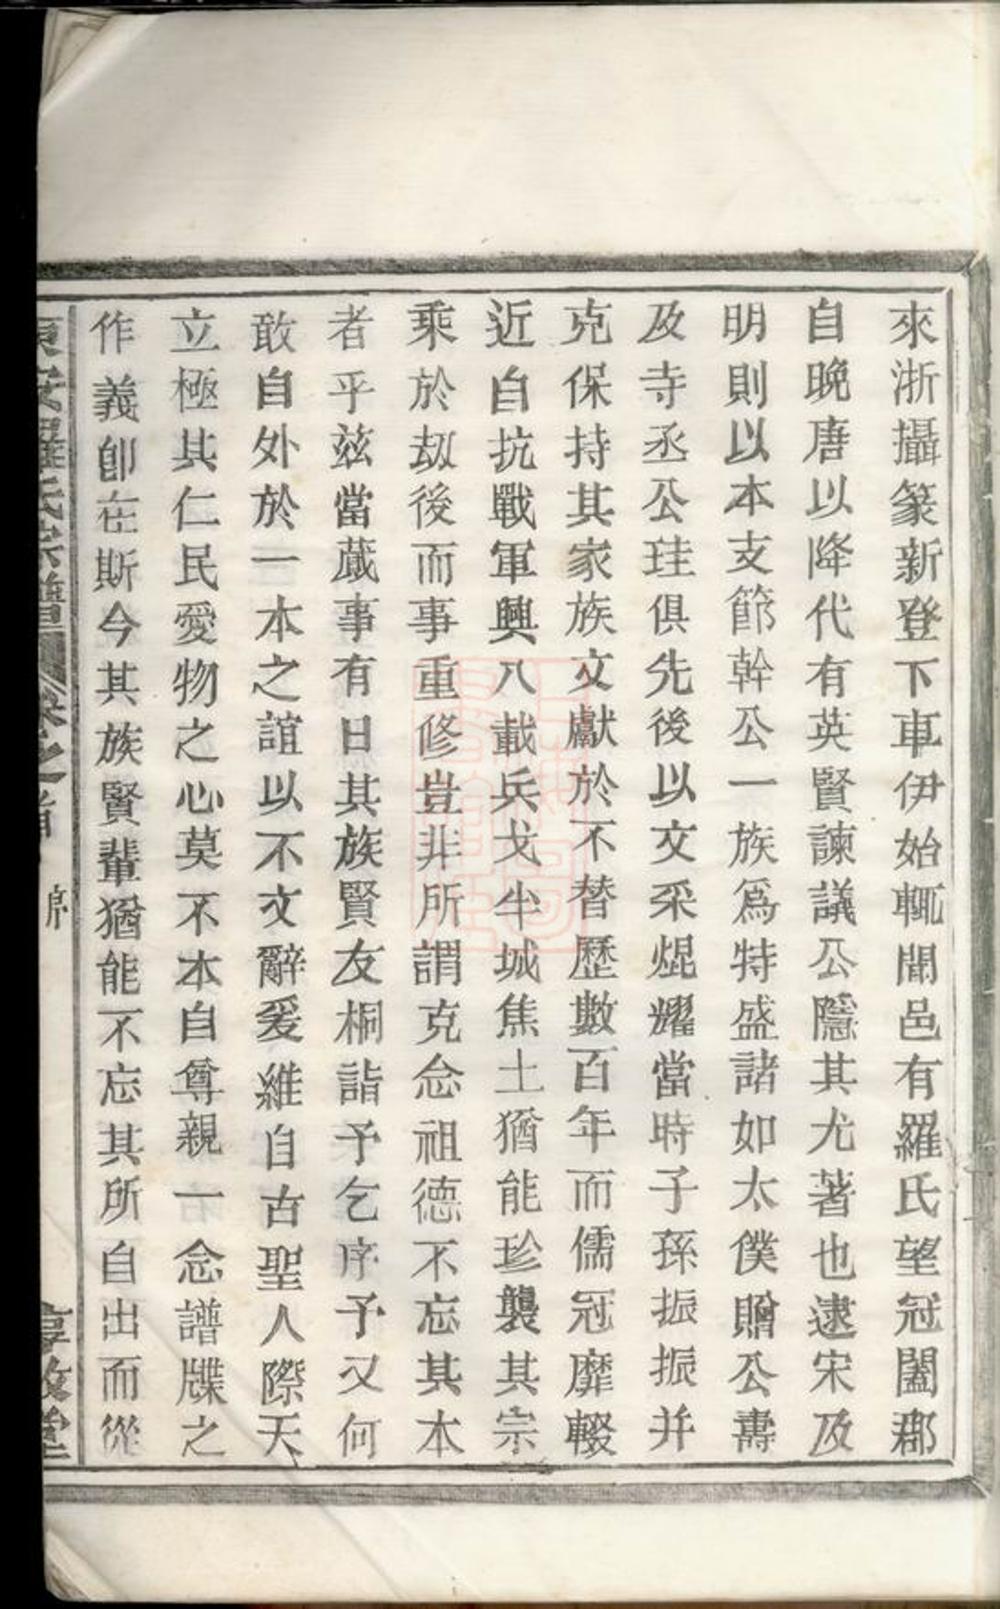 來浙攝篆新登下車伊始輒聞邑有羅氏望冠闔郡
自晚唐以降代有英賢諫議公隱其尤著也逮宋及
明則以本支節幹公一族爲特盛諸如太僕贈公壽
及寺丞公珪俱先後以文采焜耀當時子孫振振并
克保持其家族文獻於不替歷數百年而儒冠靡輟
近自抗戰軍興八載兵戈半城焦土猶能珍襲其宗
乘於刼後而事重修豈非所謂克念祖德不忘其本
者乎兹當蕆事有日其族賢友桐詣予乞序予又何
敢自外於一本之誼以不文辭爰維自古聖人際天
立極其仁民愛物之心莫不本自尊親一念譜牒之
作義卽在斯今其族賢輩猶能不忘其所自出而從
東安羅氏宗譜 卷之首 序 惇敘堂